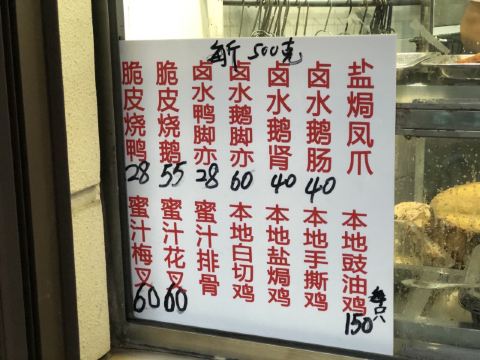 每斤 500克
脆皮烧鸭
28
脆皮烧鹅
55
卤水鸭脚亦
28
卤水鹅脚亦
60
卤水鹅肾
40
卤水鹅肠
40
盐焗凤爪
蜜汁梅叉
60
蜜汁花叉
60
蜜汁排骨
本地白切鸡
本地盐焗鸡
本地手撕鸡
本地豉油鸡
150
每只